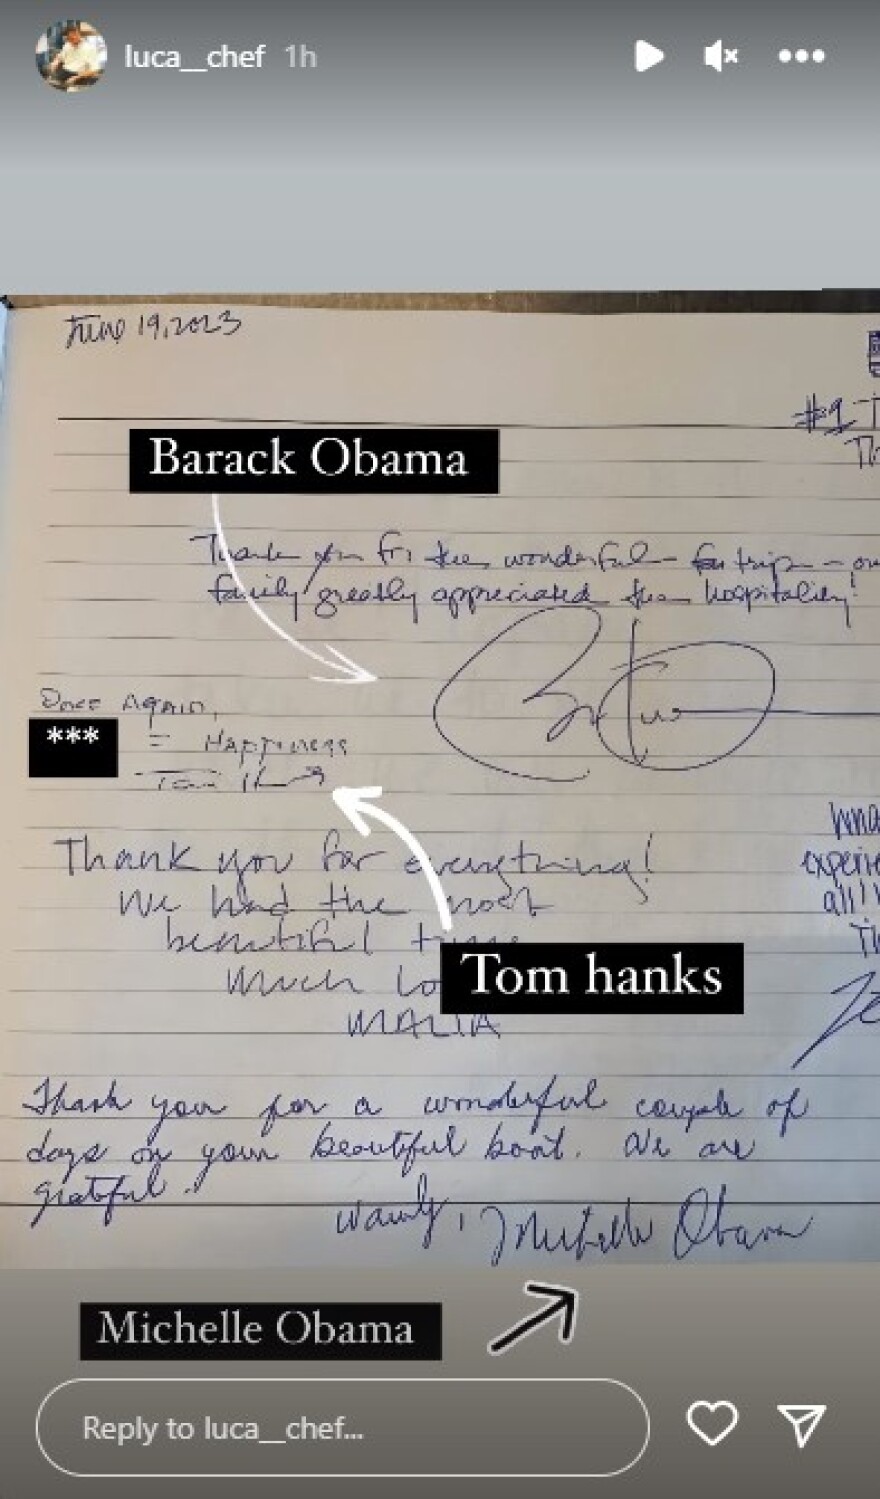 luca__chef 1h
June 19, 2023
#1
Barack Obama
Thank you for the wonderful trip – our
family greatly appreciated the hospitality!
Once Again,
***
= Happiness
Thank you for everything!
We had the most
beautiful time
Much lo
MALIA
Tom hanks
experie
all!
Thank you for a wonderful couple of
days on your beautiful boat. We are
grateful.
Warmly, Michelle Obama
Michelle Obama
Reply to luca__chef...